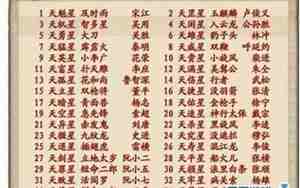 1 天魁星 及时雨 宋江 2 天罡星 玉麒麟 卢俊义
3 天机星 智多星 吴用 4 天闲星 入云龙 公孙胜
5 天勇星 大刀 关胜 6 天雄星 豹子头 林冲
7 天猛星 霹雳火 秦明 8 天威星 双鞭 呼延灼
9 天英星 小李广 花荣 10 天贵星 小旋风 柴进
11 天富星 扑天雕 李应 12 天满星 美髯公 朱仝
13 天孤星 花和尚 鲁智深 14 天伤星 行者 武松
15 天立星 双枪将 董平 16 天捷星 没羽箭 张清
17 天暗星 青面兽 杨志 18 天佑星 金枪手 徐宁
19 天空星 急先锋 索超 20 天速星 神行太保 戴宗
21 天异星 赤发鬼 刘唐 22 天杀星 黑旋风 李逵
23 天微星 九纹龙 史进 24 天究星 没遮拦 穆弘
25 天退星 插翅虎 雷横 26 天寿星 混江龙 李俊
27 天剑星 立地太岁 阮小二 28 天平星 船火儿 张横
29 天罪星 短命二郎 阮小五 30 天损星 浪里白条 张顺